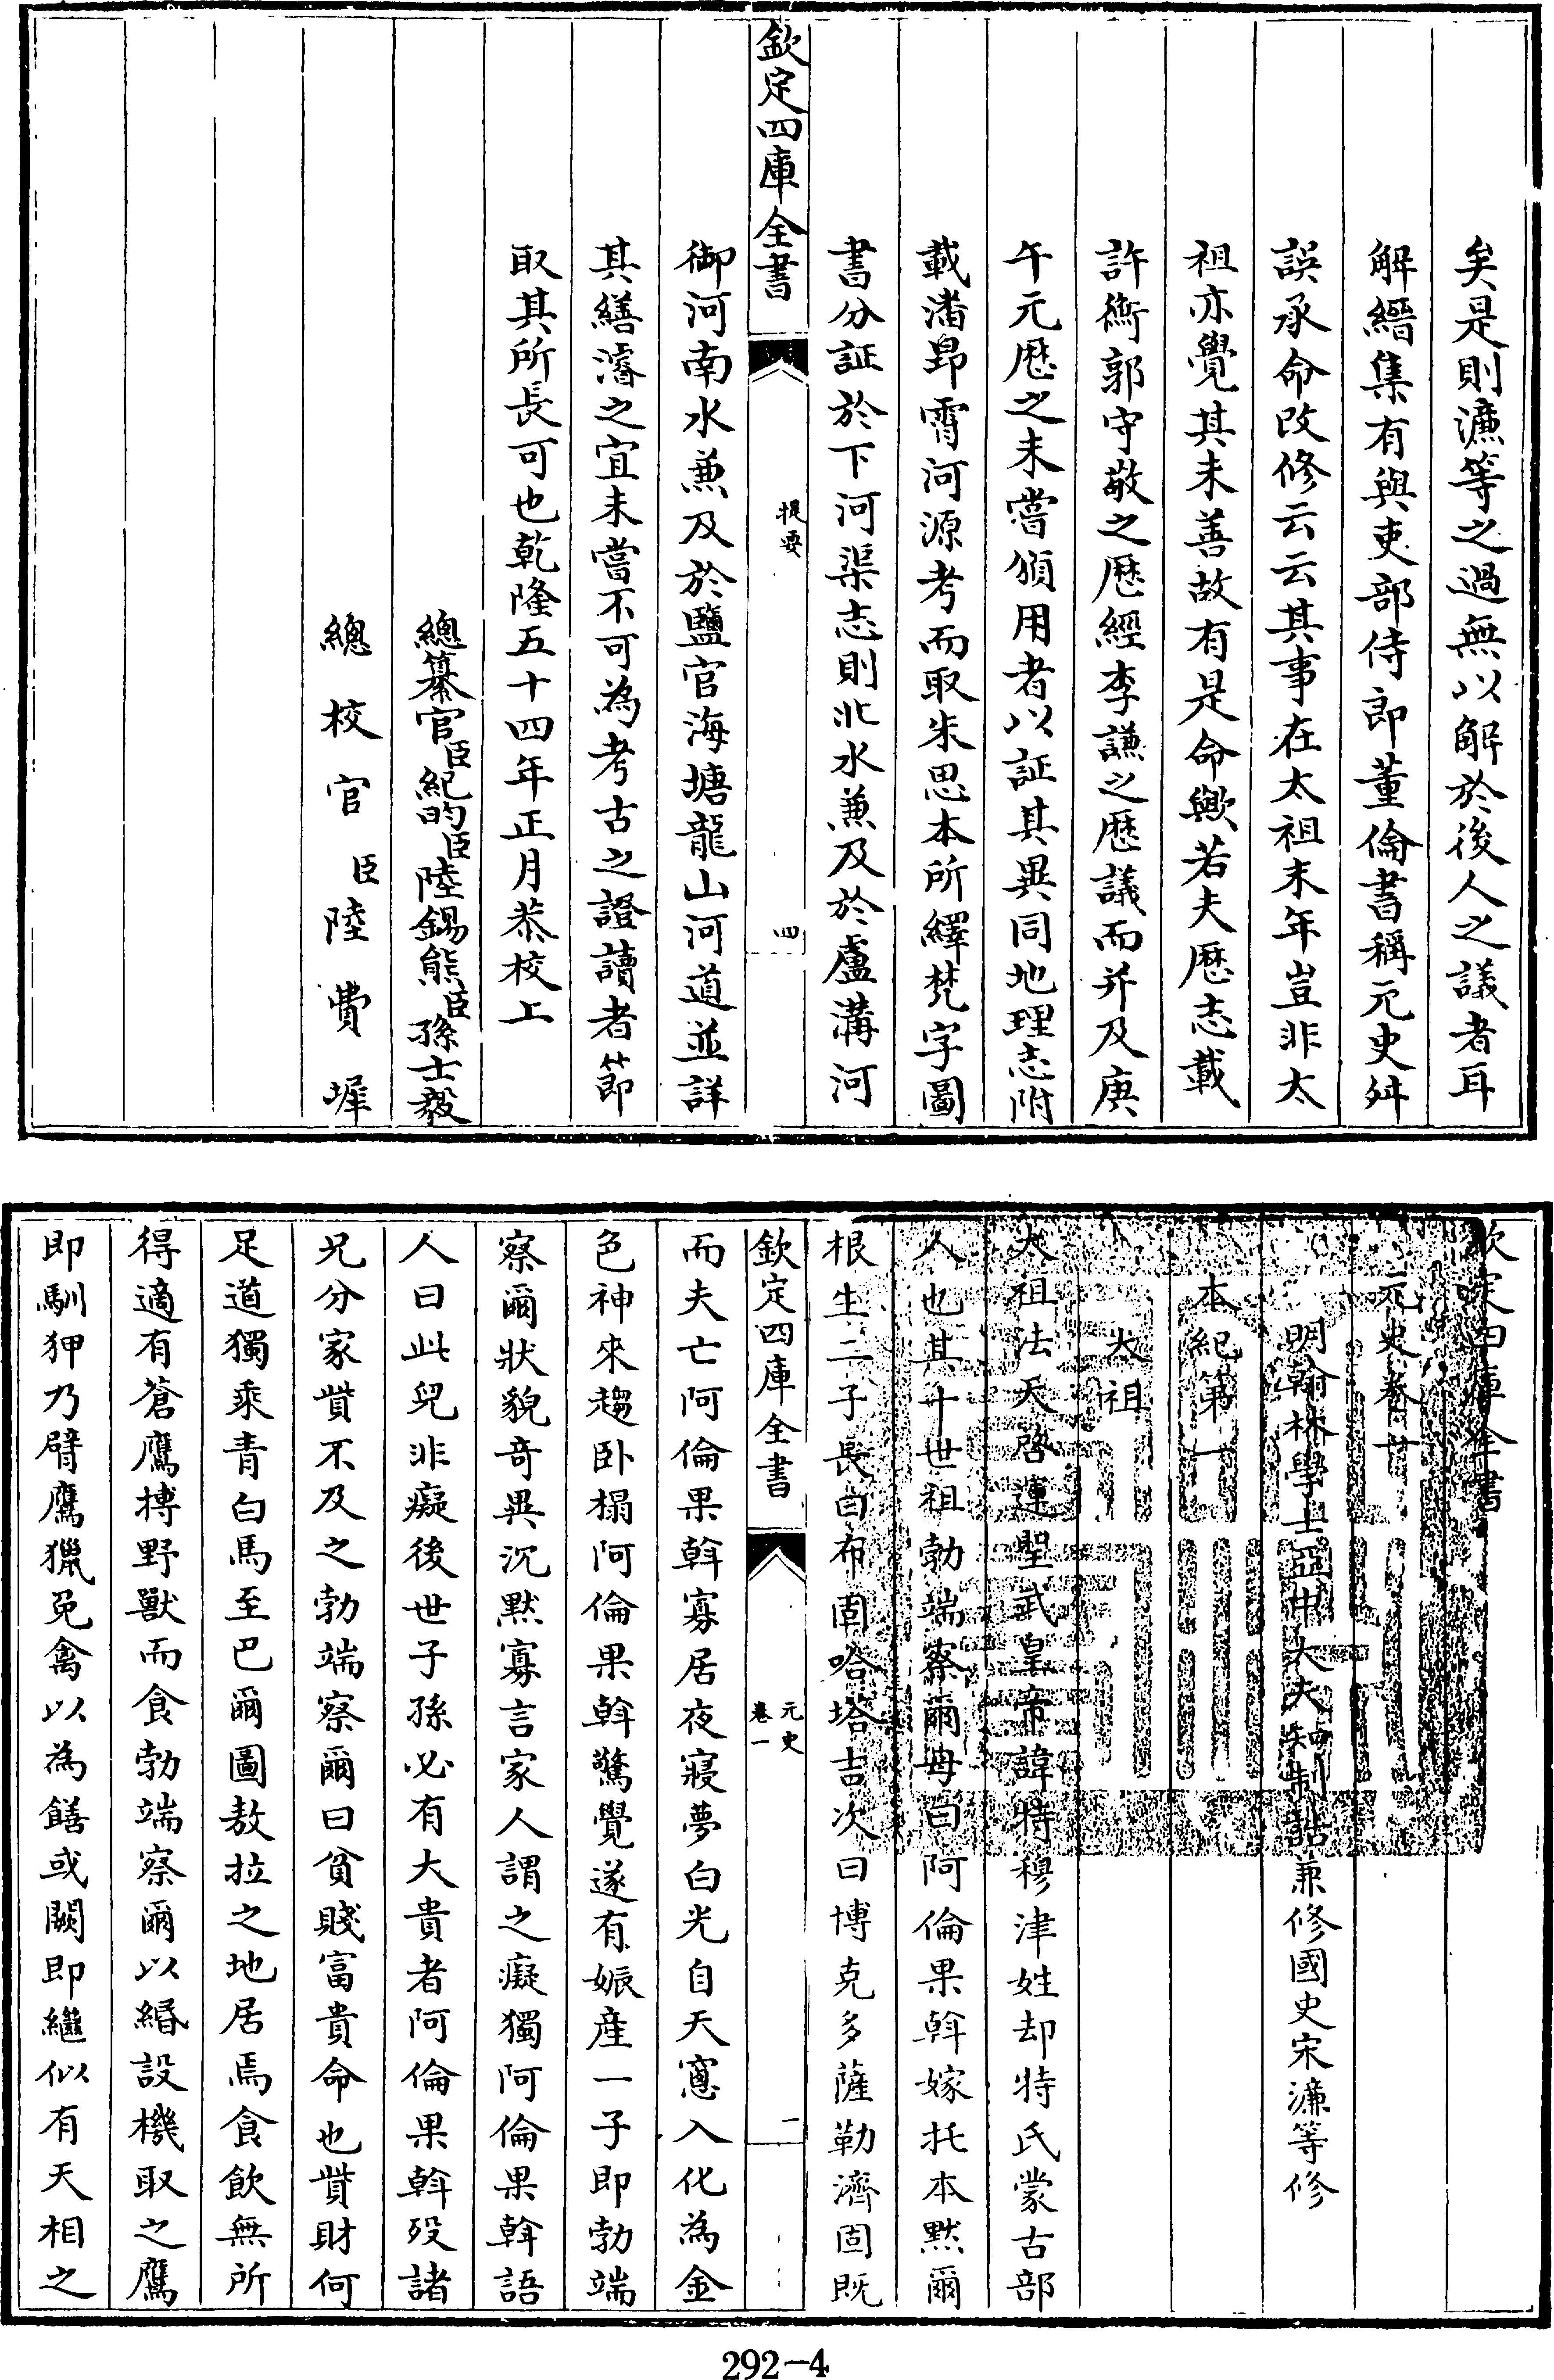 矣是則濂等之過無以解於後人之議者耳
解縉集有與吏部侍郎董倫書稱元史舛
誤承命改修云云其事在太祖末年豈非太
祖亦覺其未善故有是命歟若夫厯志載
許衡郭守敬之厯經李謙之厯議而并及庚
午元厯之未嘗頒用者以証其異同地理志附
載潘昻霄河源考而取朱思本所繹梵字圖
書分註於下河渠志則北水兼及於盧溝河
欽定四庫全書
提要
四
御河南水兼及於鹽官海塘龍山河道並詳
其繕濬之宜未嘗不可為考古之證讀者節
取其所長可也乾隆五十四年正月恭校上
總纂官臣紀昀臣陸錫熊臣孫士毅
總校官臣陸費墀
欽定四庫全書
元史卷一
明翰林學士亞中大夫知制誥兼修國史宋濂等修
本紀第一
太祖
太祖法天啓運聖武皇帝諱特穆津姓却特氏蒙古部
人也其十世祖勃端察爾母曰阿倫果斡嫁托本默爾
根生二子長曰布固哈塔吉次曰博克多薩勒濟固既
欽定四庫全書
元史
卷一
一
而夫亡阿倫果斡寡居夜寢夢白光自天窻入化為金
色神來趨卧榻阿倫果斡驚覺遂有娠産一子即勃端
察爾狀貌奇異沉默寡言家人謂之癡獨阿倫果斡語
人曰此兒非癡後世子孫必有大貴者阿倫果斡歿諸
兄分家貲不及之勃端察爾曰貧賤富貴命也貲財何
足道獨乘青白馬至巴爾圖敖拉之地居焉食飲無所
得適有蒼鷹搏野獸而食勃端察爾以緡設機取之鷹
即馴狎乃臂鷹獵兔禽以為饍或闕即繼似有天相之
292-4